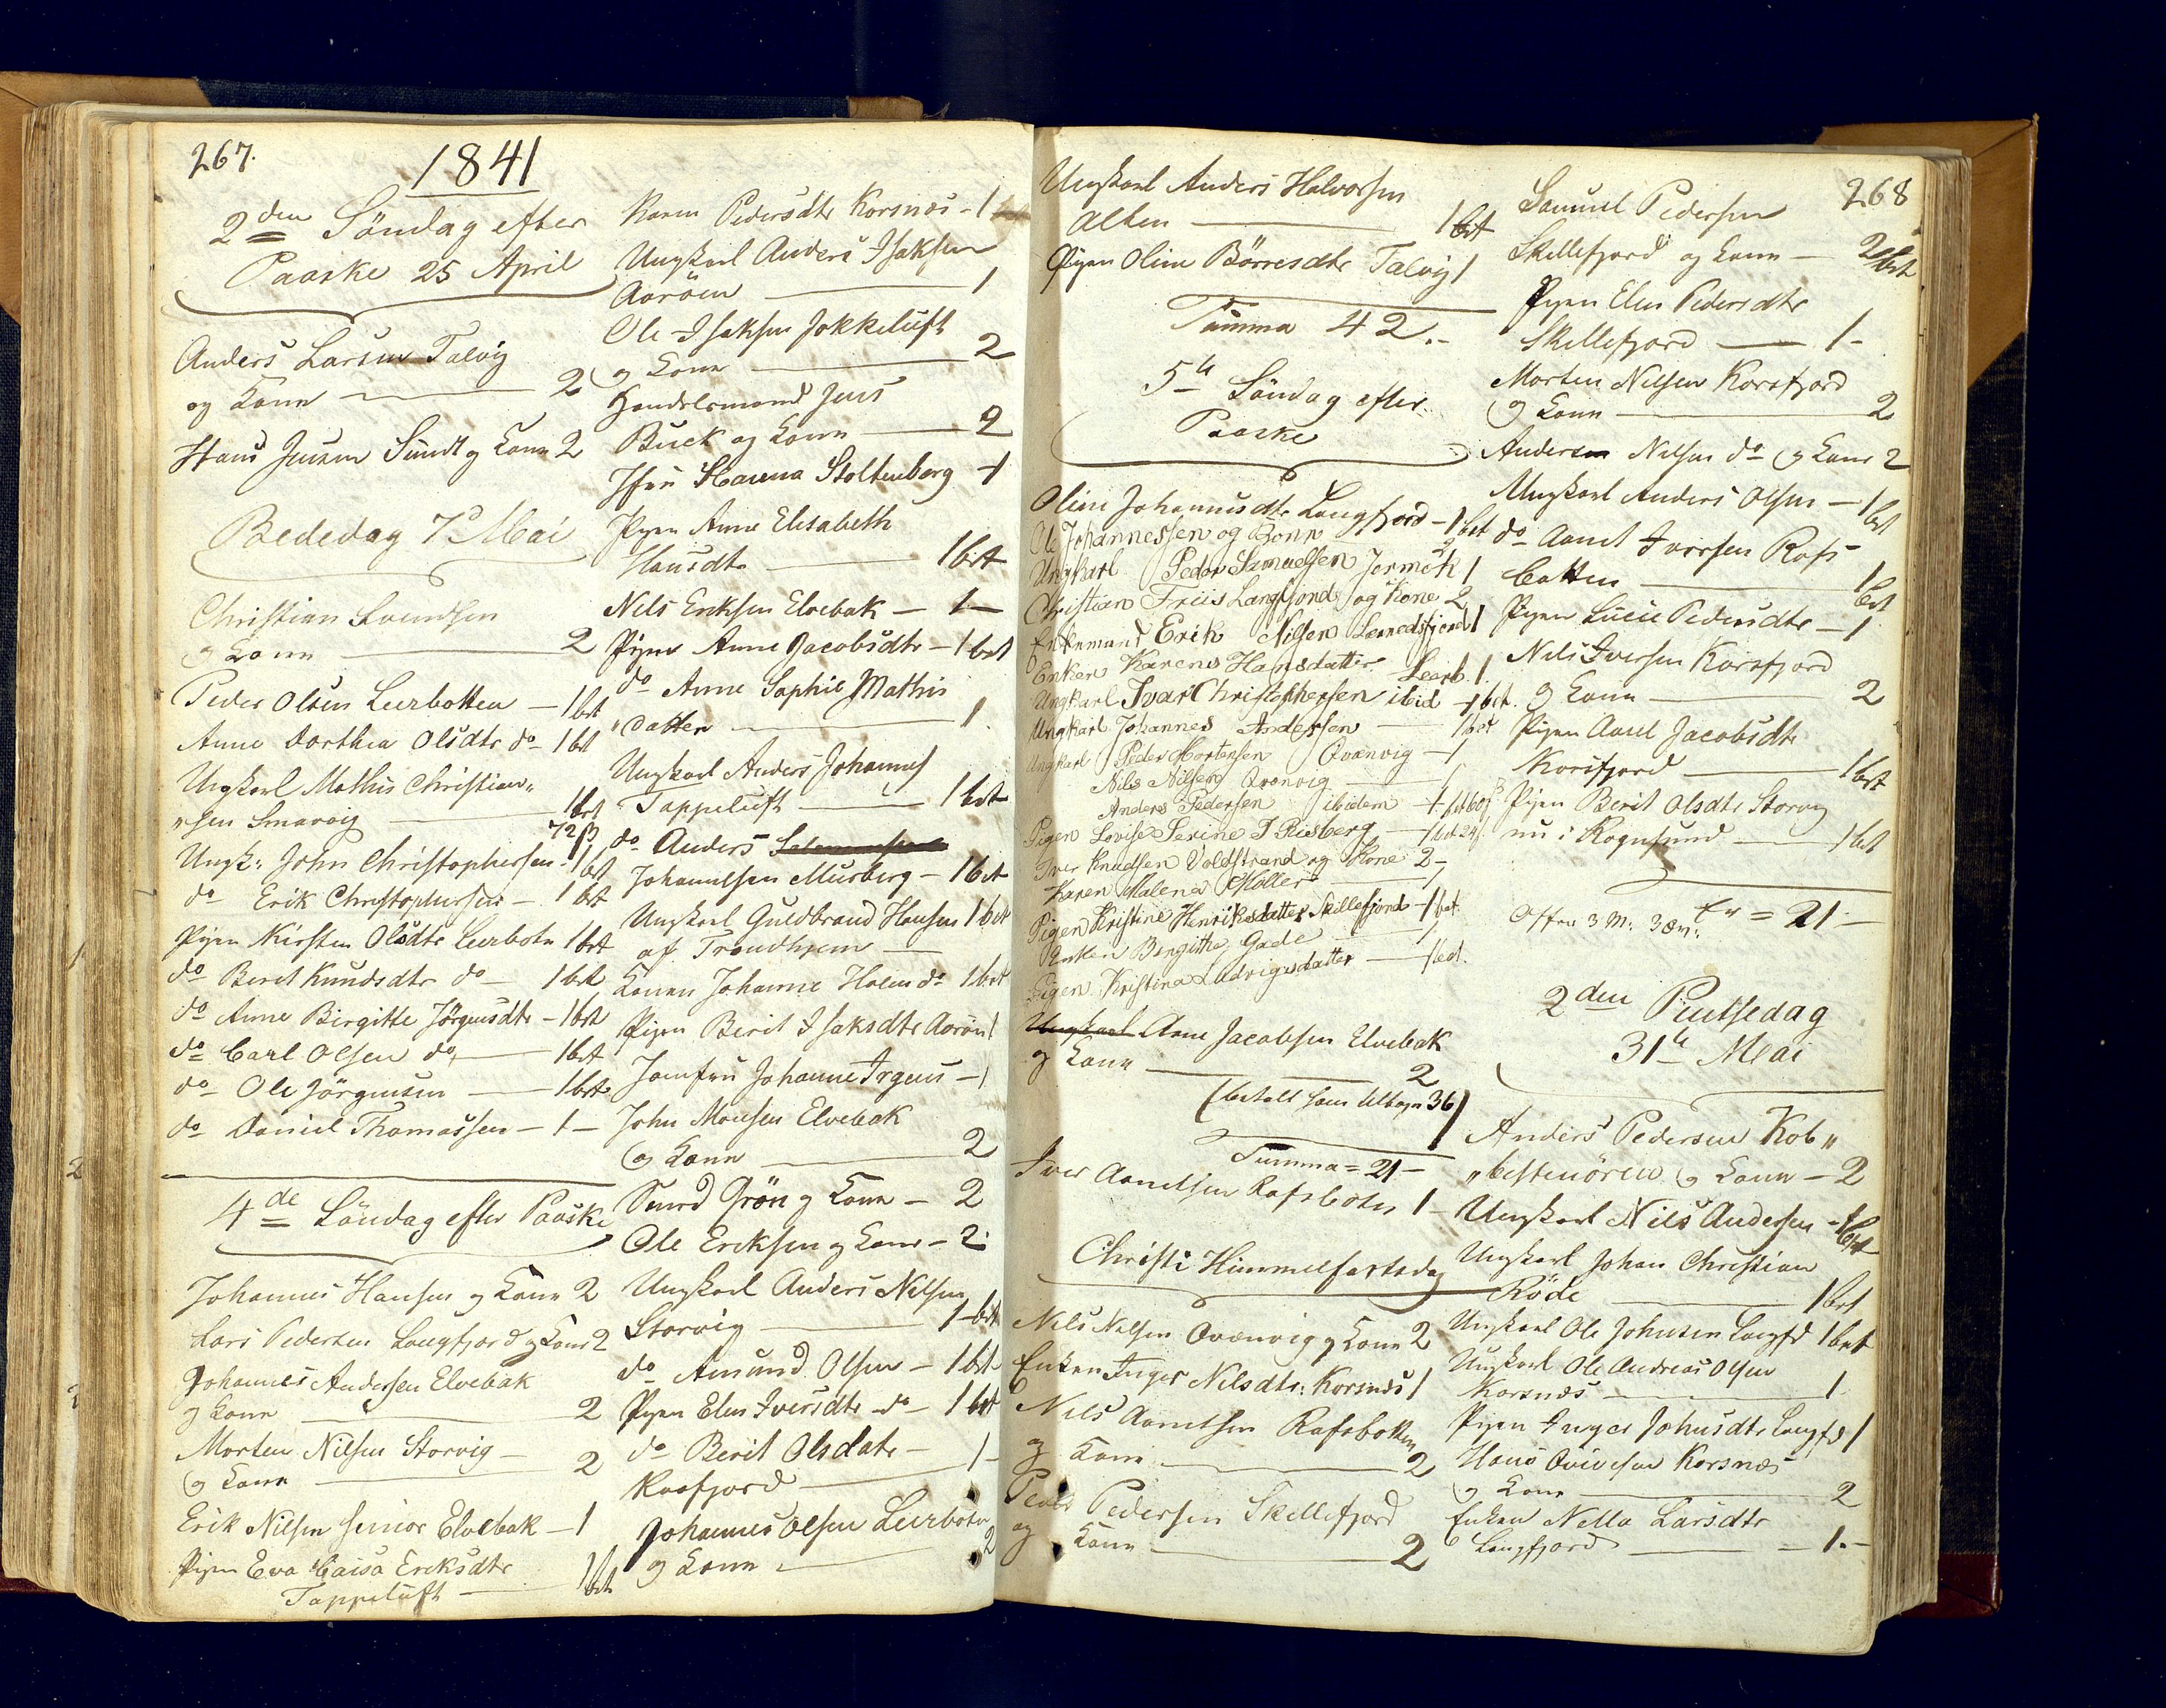 267.
1841
2den Söndag efter
Paaske 25 April
Anders Larsen Talvig
og Kone 2
Hans Jensen Sundt og Kone 2
Bededag 7d Mai
Christian Svendsen
og Kone 2
Peder Olsen Leerbotten - 1 bet
Anne Dorthea Olsdtr do 1 bet
Ungkarl Mathis Christian„
„sen Smavig 1 bet
72 β
Ungk: John Christophersen 1 bet
do Erik Christophersen - 1 bet
Pigen Kirsten Olsdtr Leerbotn 1 bet
do Berit Knudsdtr do - 1 bet
do Anne Birgitte Jörgensdtr - 1 bet
do Carl Olsen do 1 bet
do Ole Jörgensen 1 bet
do Daniel Thomassen - 1 -
4de Söndag efter Paaske
Johannes Hansen og Kone 2
Lars Pedersen Langfjord og Kone 2
Johannes Andersen Elvebak
og Kone 2
Morten Nilsen Storvig -
og Kone 2
Erik Nilsen senior Elvebak - 1
Pigen Eva Caisa Eriksdtr
Tappeluft 1 bet
Karen Pedersdtr Korsnæs - 1
Ungkarl Anders Isaksen
Aaröen 1
Ole Isaksen Jokkeluft
og Kone 2
Handelsmand Jens
Buck og Kone 2
Jfru Hanna Stoltenberg - 1
Pigen Anne Elisabeth
Hansdtr 1 bet
Nils Eriksen Elvebak - 1 -
Pigen Anne Jacobsdtr - 1 bet
do Anne Sophie Mathis
„datter 1
Ungkarl Anders Johannes
Tappeluft 1 bet
do Anders
Johannesen Murberg - 1 bet
Ungkarl Guldbrand Hansen 1 bet
af Trondhjem
Konen Johanne Holm do 1 bet
Pigen Berit Isaksdtr Aaröen 1
Jomfru Johanne Irgens - 1
John Monsen Elvebak
og Kone 2
Grön og Kone - 2
Ole Eriksen og Kone - 2
Ungkarl Anders Nilsen
Storvig 1 bet
do Amund Olsen - 1 bet
Pigen Elen Iversdtr do - 1 bet
do Berit Olsdatr - 1 -
Kaafjord
Johannes Olsen Leerbotn
og Kone 2
268
Ungkarl Anders Halvorsen
Alten 1 bet
Pigen Oline Börresdtr Talvig 1
Summa 42.-
5te Söndag efter
Paaske
Oline Johannesdtr Langfjord - 1 bet
Ole Johannessen og Kone 2
Ungkarl Peder Samuelsen Jermek 1
Christian Friis Langfjord og Kone 2
Enkemand Erik Nilsen 1
Enken Karen Hansdatter Leerb. 1.
Ungkarl Ivar Christophersen ibid 1 bet.
Ungkarl Johannes Andersen 1 bet
Ungkarl Peder Mortensen Qvænvig - 1
Nils Nilsen Qvænvig 1
Anders Pedersen ibidem 1
Pigen Lovise Serine Risberg
Iver Knudsen Voldstrand og Kone 2 -
Karen Malena Møller 1
Pigen Kristine Henriksdatter Skillefjord - 1 bet
Enken Birgitha Gade 1
Pigen Kristina Ludvigsdatter 1 bet.
Ungkarl Arne Jacobsen Elvebak
og Kone 2
(betalt som 36)
Summa = 21 -
Iver Aamelsen Rafsbotn 1 -
Christi Himmelfartsdag
Nils Nilsen Qvænvig og Kone 2
Enken Inger Nilsdtr: Korsnæs 1
Nils Aamelsen Rafsbotten
og Kone 2
Peder Pedersen Skillefjord
og Kone 2
Samuel Pedersen
Skillefjord og Kone - 2 bet
Pigen Elen Pedersdtr
Skillefjord 1 -
Morten Nilsen Korsfjord
og Kone 2
Andersen Nilsen do og Kone 2
Ungkarl Anders Olsen - 1 bet
do Iversen Rafs-
botten 1 bet
Pigen Lucie Pedersdtr - 1
Nils Iversen Korsfjord
og Kone 2
Pigen Jacobsdtr
Korsfjord 1 bet
Pigen Berit Olsdtr Storvig
nu i Rognsund 1 bet
= 21 -
2den Pintsedag
31te Mai
Anders Pedersen Kob„
„bestenören og Kone - 2
Ungkarl Nils Andersen - 1 bet
Ungkarl Johan Christian
Röde 1 bet
Ungkarl Ole Johnsen Langfd 1 bet
Ungkarl Ole Andreas Olsen
Korsnæs 1
Pigen Inger Johnsdtr Langfd 1
Hans Korsnæs
og Kone 2
Enken Nella Larsdtr
Langfjord 1.-